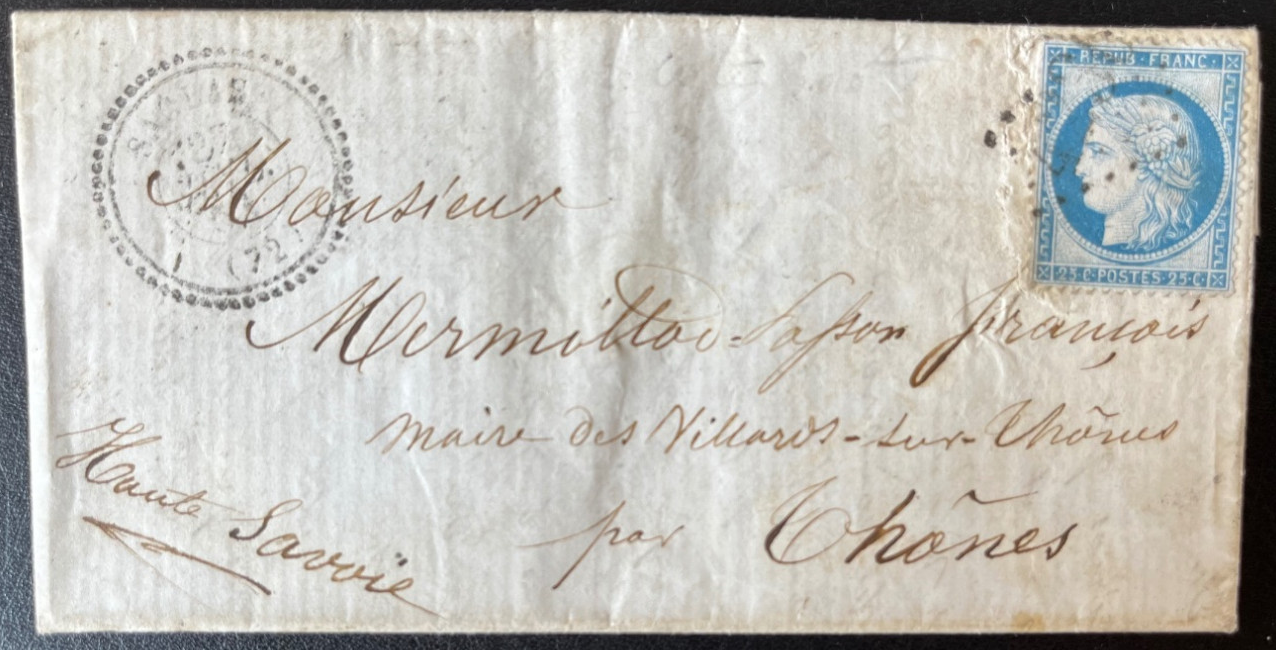 REPUB · FRANC ·
25 C · POSTES · 25 · C ·
(72)
Monsieur
Mermillod-Sasson François
maire des Villards-sur-Thônes
par Thônes
Haute Savoie